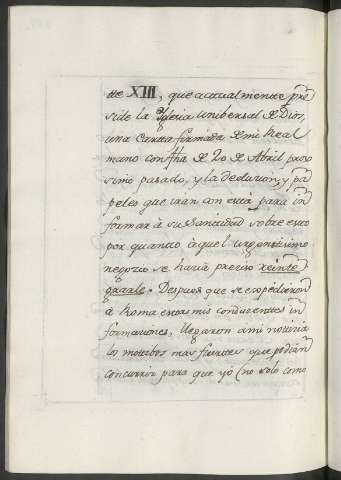 tte XIII, que actualmente pre
side la Iglesia universal de Dios,
una Carta firmada de mi Real
mano con fha de 20 de Abril proxi
simo pasado, y la deducion, y pa
peles que iran con esta para in
formar à su Santidad sobre esto
por quanto aquel urgentissimo
negozio se havia preciso reinte
grarle. Despues que se expidieron
à Roma estas mis conducentes in
formaciones, llegaron a mi noticia
los motibos mas fuertes que podian
concurrir para que yo (no solo como